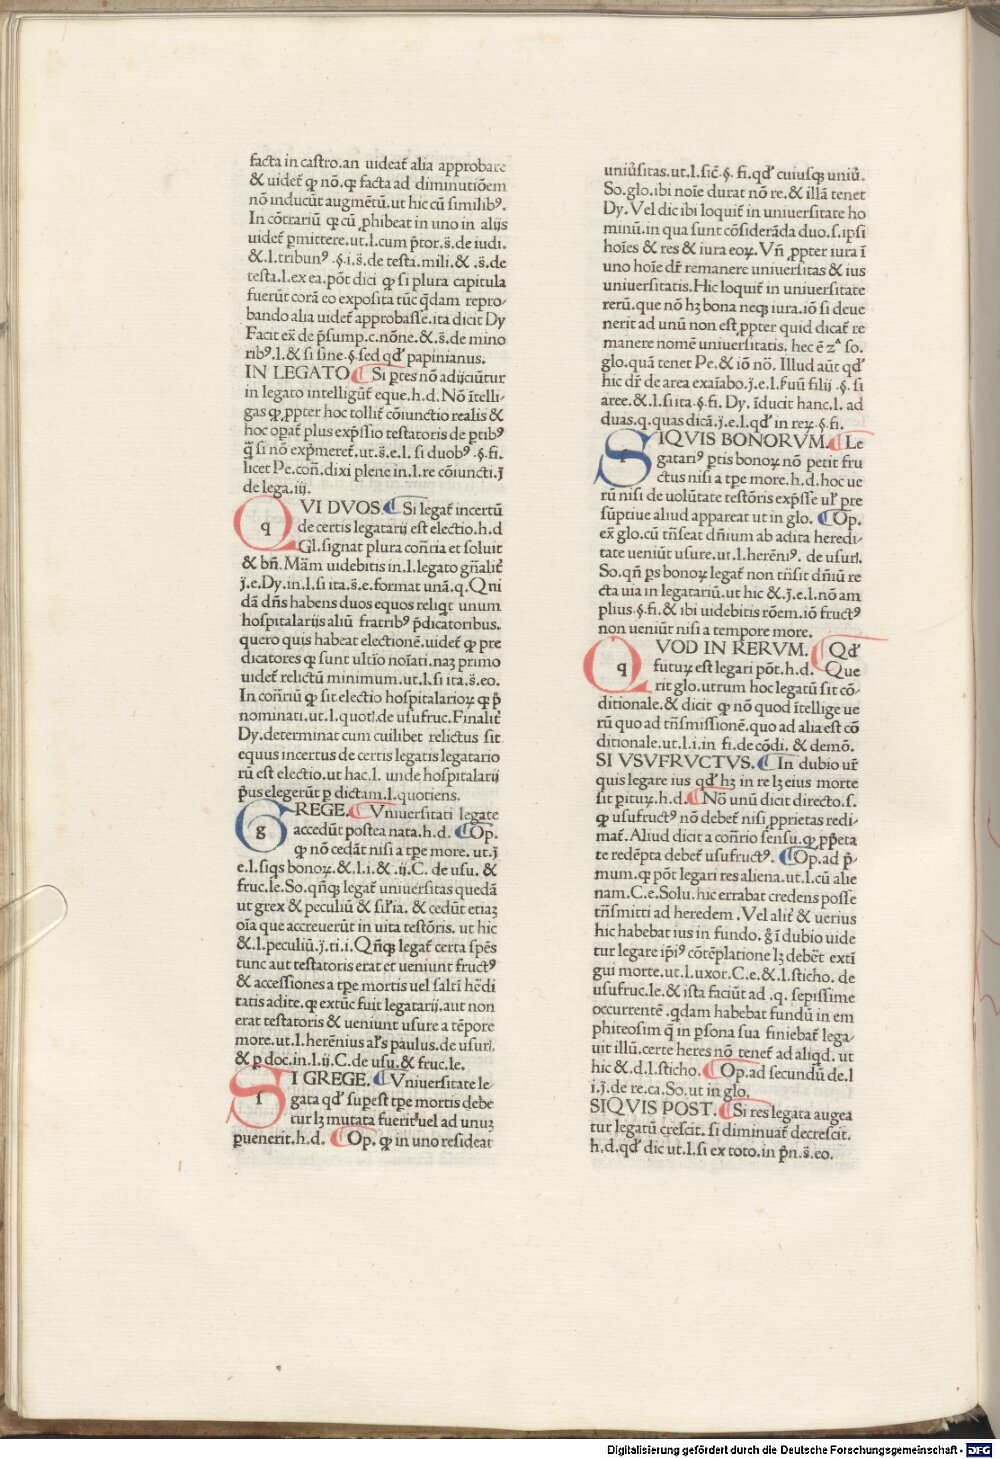 facta in castro.an uideat̄ alia approbare
& uidet̄ ꝙ nō.ꝙ facta ad diminutiōem
nō inducūt augmētū.ut hic cū similibꝰ.
In cōtrariū ꝙ cū ꝓhibeat in uno in alijs
uidet̄ ꝑmittere.ut.l.cum p̄tor.s̄.de iudi.
&.l.tribunꝰ.§.i.s̄.de testa.mili.& .s̄.de
testa.l.ex ea.pōt dici ꝙ si plura capitula
fuerūt corā eo exposita tūc q̄dam repro-
bando alia uidet̄ approbasse.ita dicit Dy
Facit ex̄ de p̄sump.c.nōne.&.s̄.de mino
ribꝰ.l.& si sine.§.sed qd̓ papinianus.
IN LEGATO ¶ Si ꝑtes nō adijciūtur
in legato intelligūt̄ eque.h.d. Nō ītelli-
gas ꝙ ꝓpter hoc tollit̄ cōiunctio realis &
hoc opat̄ plus exp̄ssio testatoris de ꝑtibꝰ
q̄ si nō exp̄meret̄.ut.s̄.e.l. si duobꝰ.§.fi.
licet Pe.con̄.dixi plene in.l.re cōiuncti.j̄
de lega.iij.
QVI DVOS. ¶ Si legat̄ incertū
q de certis legatarij est electio.h.d
Gl.signat plura con̄ria et soluit
& bn̄. Mām uidebitis in.l.legato gn̄alit̄
j̄.e.Dy.in.l.si ita.s̄.e.format unā.q. Qui
dā dn̄s habens duos equos reliqt unum
hospitalarijs aliū fratribꝰ p̄dicatoribus.
quero quis habeat electionē.uidet̄ ꝙ pre
dicatores ꝙ sunt ultīo noīati.naꝫ primo
uidet̄ relictū minimum.ut.l.si ita.s̄.eo.
In con̄riū ꝙ sit electio hospitalarioꝝ ꝙ p̄
nominati.ut.l.quotl.de usufruc. Finalit̄
Dy.determinat cum cuilibet relictus sit
equus incertus de certis legatis legatario
rū est electio.ut hac.l. unde hospitalarij
p̄us elegerūt ꝑ dictam.l.quotiens.
GREGE. ¶ Vniuersitati legate
g accedūt postea nata.h.d. ¶ Op.
ꝙ nō cedāt nisi a tꝑe more. ut.j̄
e.l.siqs bonoꝝ.&.l.i.&.ij.C. de usu. &
fruc.le.So.qn̄qꝫ legat̄ uniuersitas quedā
ut grex & peculiū & sil̓ia. & cedūt etiaꝫ
oīa que accreuerūt in uita testōris. ut hic
&.l.peculiū.j̄.ti.i. Qn̄qꝫ legat̄ certa spēs
tunc aut testatoris erat et ueniunt fructꝰ
& accessiones a tꝑe mortis uel saltī hēdi
tatis adite.ꝙ extūc fuit legatarij.aut non
erat testatoris & ueniunt usure a tēpore
more.ut.l.herēnius al̓s paulus.de usurl.
& ꝑ doc.in.l.ij.C.de usu.& fruc.le.
SI GREGE. ¶ Vniuersitate le-
s gata qd̓ suꝑest tꝑe mortis debe
tur lꝫ mutata fuerit uel ad unuꝫ
ꝑuenerit.h.d. ¶ Op. ꝙ in uno resideat
uniu̓sitas.ut.l.sic̄.§. fi.qd̓ cuiusqꝫ uniu̓.
So.glo.ibi noīe durat nō re.& illā tenet
Dy. Vel dic ibi loquit̄ in uniuersitate ho
minū.in qua sunt cōsiderāda duo.s.ipsi
hoīes & res & iura eoꝝ. Vn̄ ꝓpter iura ī
uno hoīe dr̄ remanere uniuersitas & ius
uniuersitatis. Hic loquit̄ in uniuersitate
rerū.que nō hꝫ bona neqꝫ iura.iō si deue
nerit ad unū non est ꝓpter quid dicat̄ re
manere nomē uniuersitatis. hec ē zᵃ so.
glo.quā tenet Pe.& iō nō. Illud aūt qd̓
hic dr̄ de area exaīabo.j̄.e.l.fuū filij .§. si
aree.&.l.si ita.§.fi. Dy. īducit hanc.l. ad
duas.q.quas dicā.j̄.e.l.qd̓ in reꝝ.§.fi.
SIQVIS BONORVM. ¶ Le
s gatariꝰ ꝑtis bonoꝝ nō petit fru
ctus nisi a tꝑe more.h.d.hoc ue
rū nisi de uolūtate testōris exp̄sse ul̓ pre
sūptiue aliud appareat ut in glo. ¶ Op.
ex̄ glo.cū trn̄seat dn̄ium ab adita heredi-
tate ueniūt usure.ut.l.herēniꝰ. de usurl.
So.qn̄ ꝑs bonoꝝ legat̄ non trn̄sit dn̄iū re
cta uia in legatariū.ut hic &.j̄.e.l.nō am
plius.§.fi.& ibi uidebitis rōem.iō fructꝰ
non ueniūt nisi a tempore more.
QVOD IN RERVM. ¶ Qd̓
q futuꝝ est legari pōt.h.d. ¶ Que
rit glo.utrum hoc legatū sit cō-
ditionale.& dicit ꝙ nō quod ītellige ue
rū quo ad trn̄smissionē.quo ad alia est cō
ditionale.ut.l.i.in fi.de cōdi. & demō.
SI VSVFRVCTVS. ¶ In dubio ur̄
quis legare ius qd̓ hꝫ in re lꝫ eius morte
sit ꝑituꝝ.h.d. ¶ Nō unū dicit directo.s.
ꝙ usufructꝰ nō debet̄ nisi ꝓprietas redi-
mat̄. Aliud dicit a con̄rio sensu.ꝙ ꝓp̄eta
te redēpta debet̄ usufructꝰ. ¶ Op.ad p̄-
mum.ꝙ pōt legari res aliena.ut.l.cū alie
nam.C.e.Solu.hic errabat credens posse
trn̄smitti ad heredem . Vel alit̄ & uerius
hic habebat ius in fundo.g̊ ī dubio uide
tur legare ip̄iꝰ cōtēplatione lꝫ debēt extī
gui morte.ut.l.uxor.C.e.&.l.sticho. de
usufruc.le.& ista faciūt ad .q. sepissime
occurrentē .qdam habebat fundū in em
phiteosim q̄ in ꝑsona sua finiebat̄ lega-
uit illū.certe heres nō tenet̄ ad aliqd. ut
hic &.d.l.sticho. ¶ Op.ad secundū de.l
i.j̄.de re.ca.So.ut in glo.
SIQVIS POST. ¶ Si res legata augea
tur legatū crescit. si diminuat̄ decrescit.
h.d.qd̓ dic ut.l.si ex toto.in p̄n.s̄.eo.
Digitalisierung gefördert durch die Deutsche Forschungsgemeinschaft - DFG